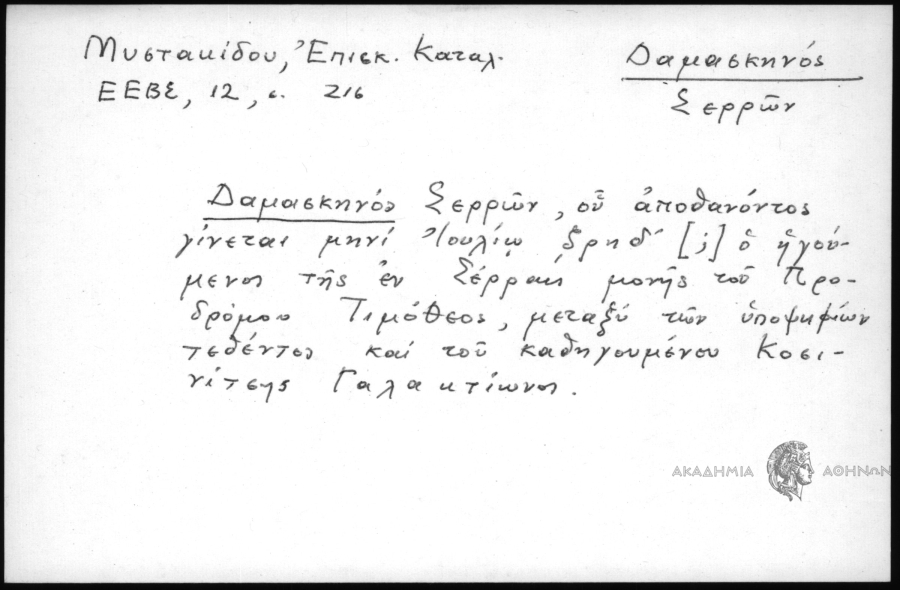 Μυστακίδου, Ἐπισκ. Καταλ.
ΕΕΒΣ, 12, σ. 216
Δαμασκηνός
Σερρῶν
Δαμασκηνός Σερρῶν, οὗ ἀποθανόντος
γίνεται μηνί Ἰουλίῳ ͵ζρηδ΄ [;] ὁ ἡγού-
μενος τῆς ἐν Σέρραις μονῆς τοῦ Προ-
δρόμου Τιμόθεος, μεταξύ τῶν ὑποψηφίων
τεθέντος καί τοῦ καθηγουμένου Κοσι-
νίτσης Γαλακτίωνος.
ΑΚΑΔΗΜΙΑ ΑΘΗΝΩΝ